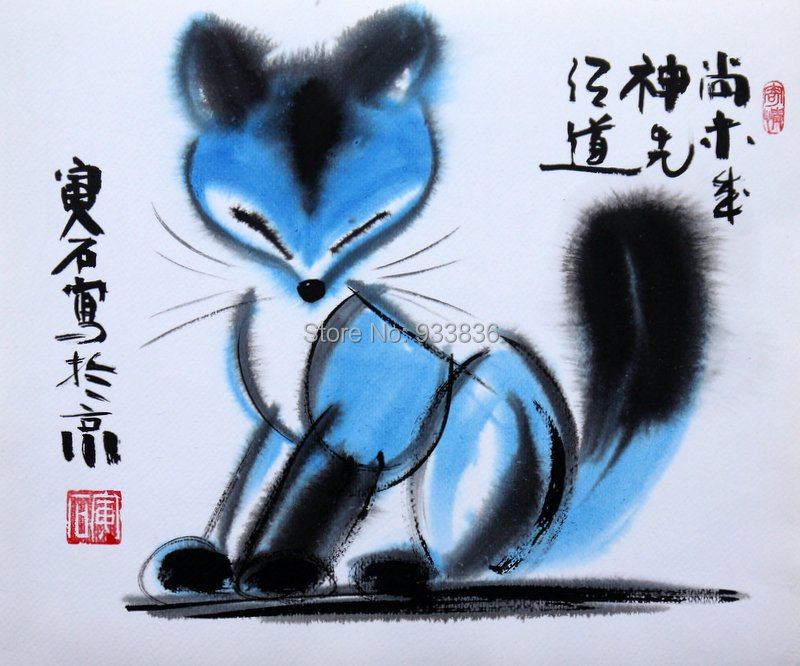 尚未成
神先
得道
寅石寫於京
寅石
Store No: 933836